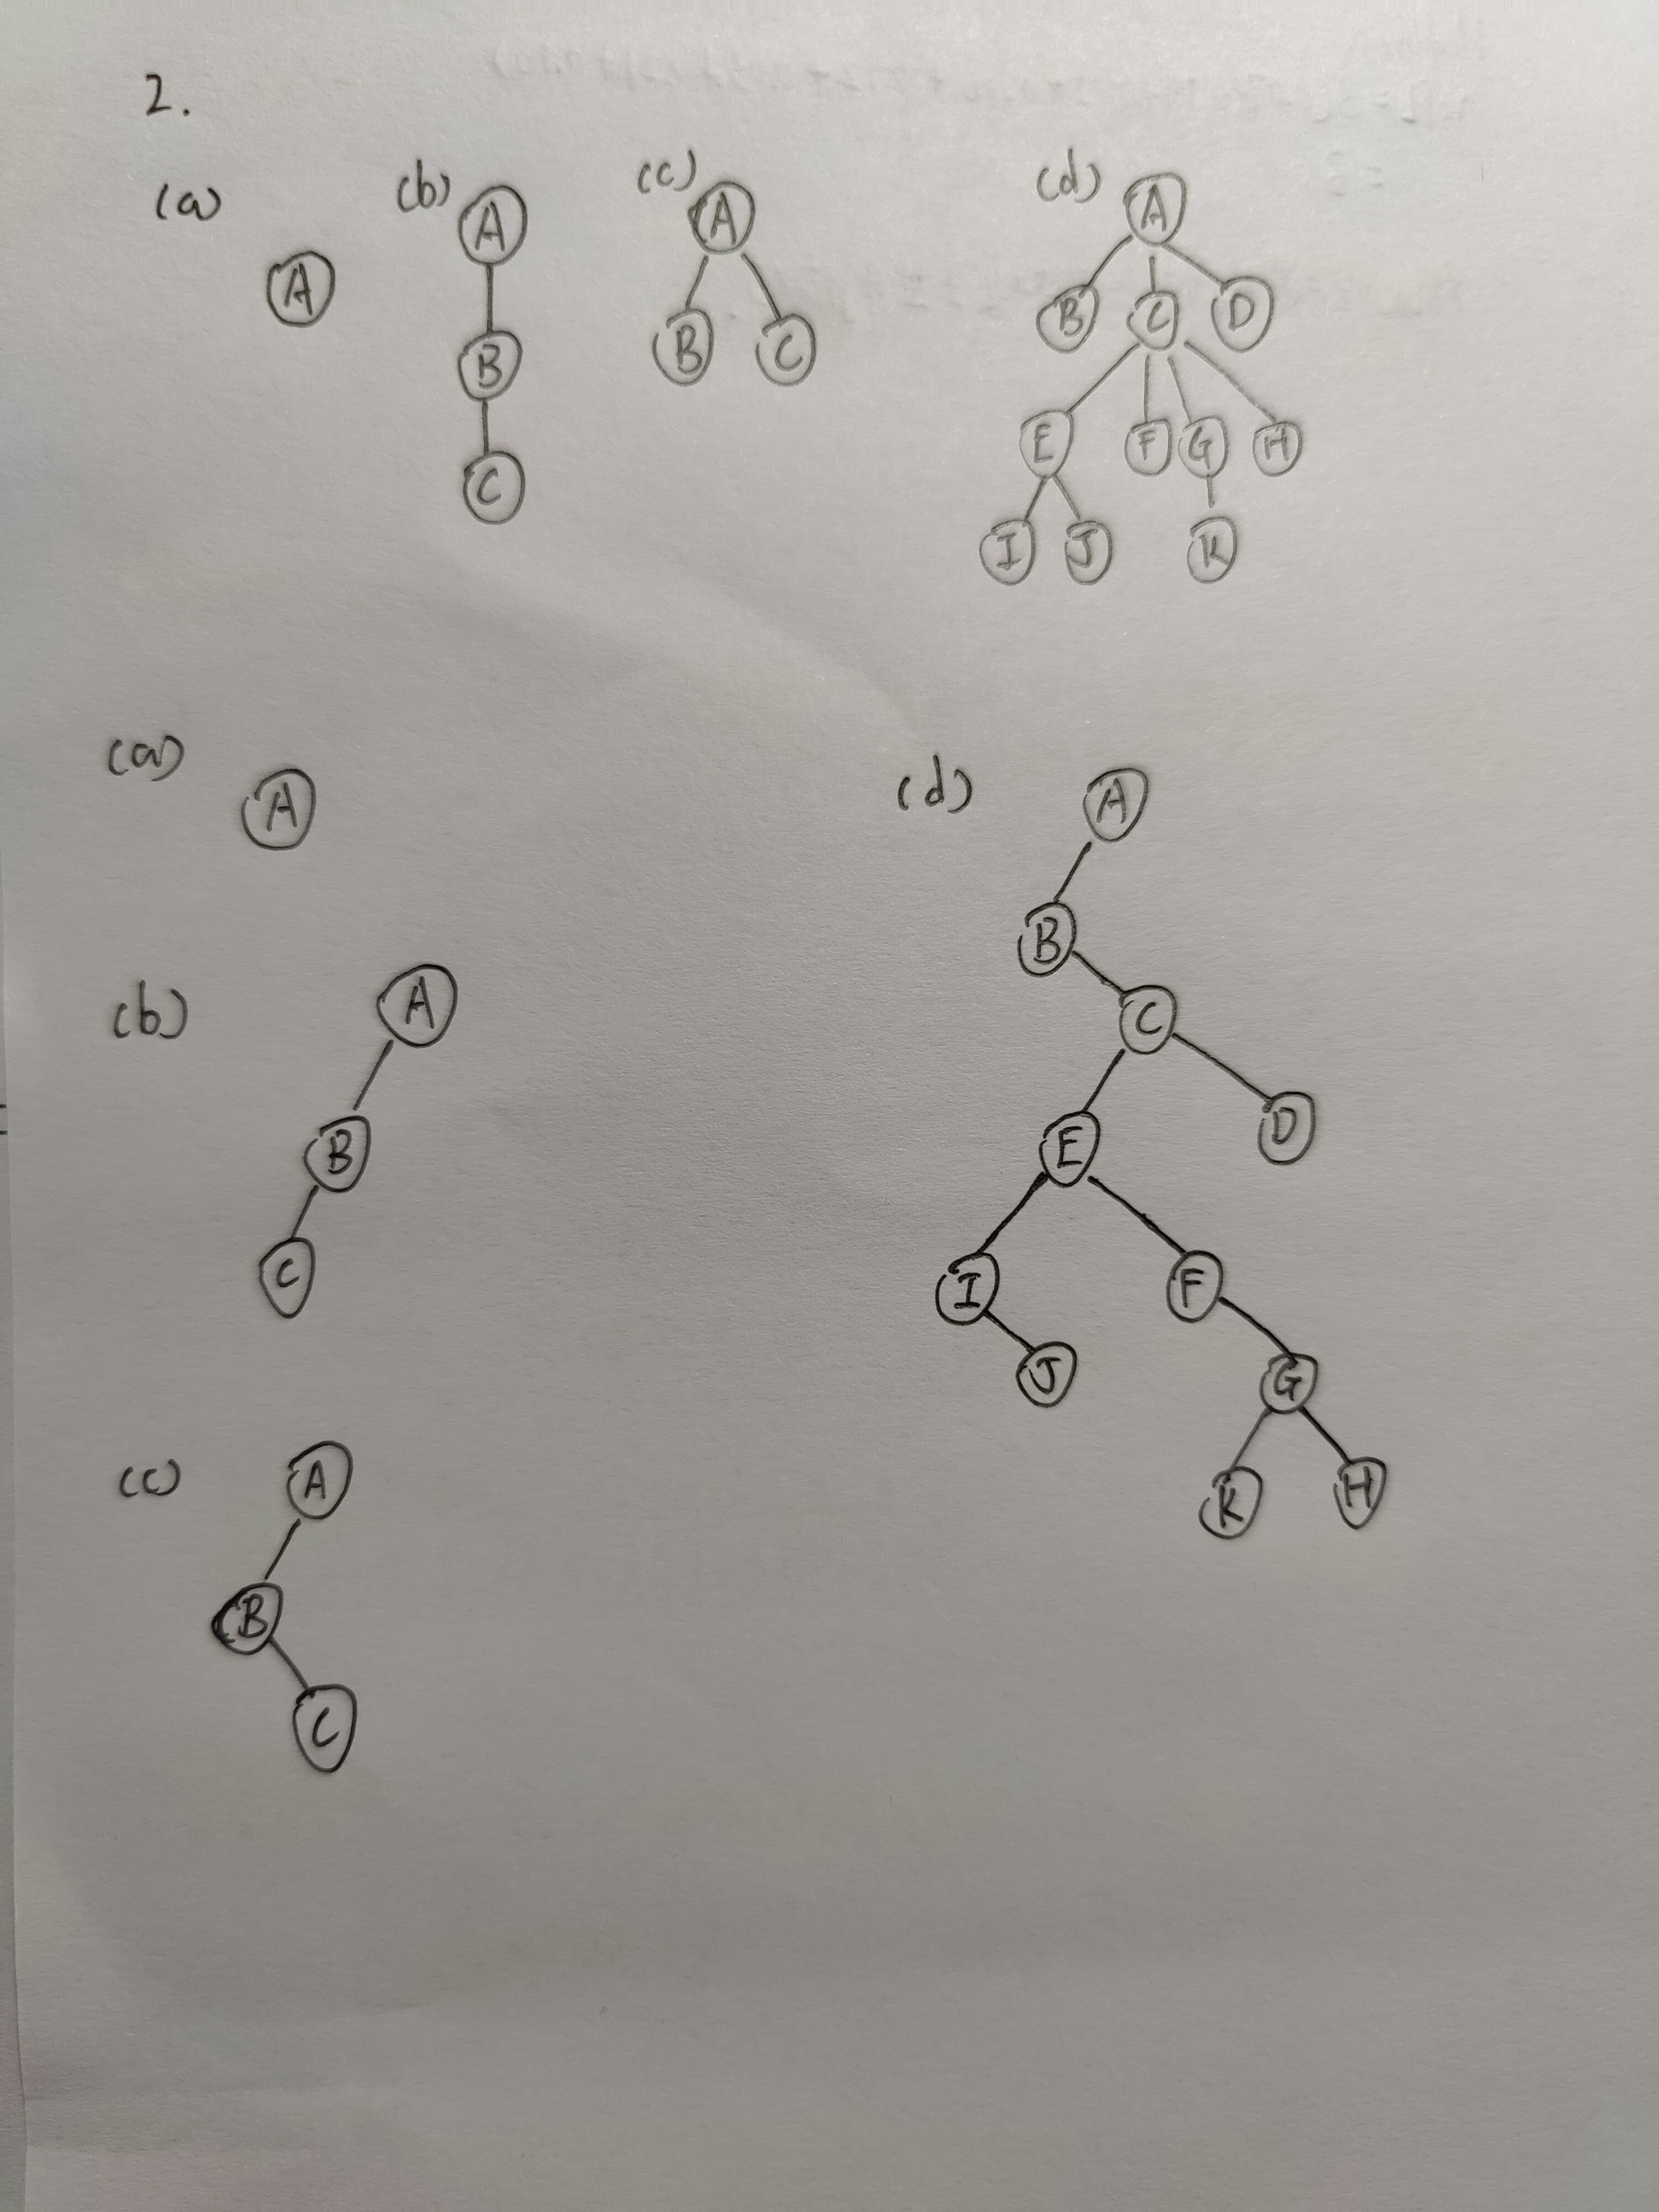 2.
(a) (b) (c) (d)
A
A
B
C
A
B C
A
B C D
E F G H
I J K
(a)
A
(b)
A
B
C
(c)
A
B
C
(d)
A
B
C
E D
I F
J G
K H